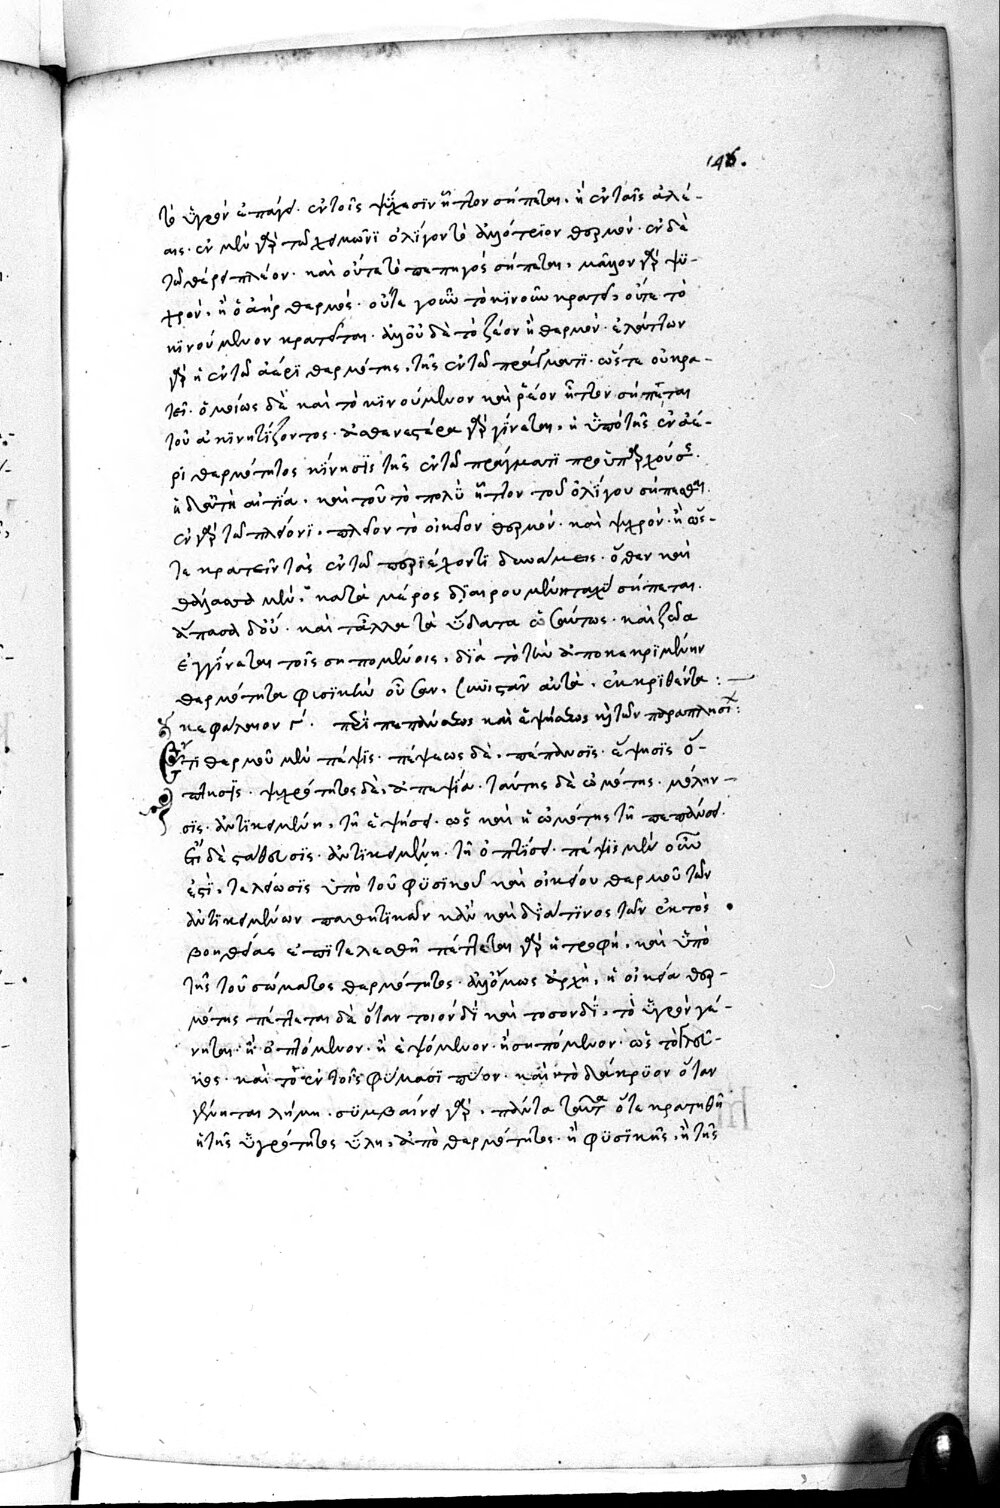 146.
τὸ ὑγρὸν ἐπάγει. ἐν τοῖς ψύχεσιν ἧττον σήπεται, ἢ ἐν ταῖς ἀλέ-
αις. ἐν μὲν γὰρ τῷ χειμῶνϊ ὀλίγον τὸ ἀλλότριον θερμόν. ἐν δὲ
τῷ θέρει πλέον. καὶ οὔτε τὸ πεπηγὸς σήπεται, μᾶλλον γὰρ ψυ-
χρόν, ἢ ὁ ἀὴρ θερμός. οὔτε γοῦν τὸ κινοῦν κρατεῖ, οὔτε τὸ
κινούμενον κρατεῖται. ἀλλ' οὐδὲ τὸ ζέον ἢ θερμόν. ἐλάττων
γὰρ ἡ ἐν τῷ ἀέρϊ θερμότης, τῆς ἐν τῷ πράγματϊ. ὥστε οὐ κρα-
τεῖ. ὁμοίως δὲ καὶ τὸ κινούμενον καὶ ῥέον ἧττον σήπεται
τοῦ ἀκινητίζοντος. ἀσθενεστέρα γὰρ γίνεται, ἡ ὑπὸ τῆς ἐν ἀέ-
ρϊ θερμότητος κίνησϊς τῆς ἐν τῷ πράγματϊ προϋπαρχούσης.
ἡ δ' αὐτὴ αἰτία, καὶ τοῦ τὸ πολὺ ἧττον τοῦ ὀλίγου σήπεσθαι.
ἐν γὰρ τῷ πλείονϊ, πλεῖον τὸ οἰκεῖον θερμόν. καὶ ψυχρὸν. ἢ ὥς-
τε κρατεῖν τὰς ἐν τῷ περϊέχοντϊ δυνάμεις. ὅθεν καὶ
θάλασσα μὲν, κατὰ μέρος δϊαιρουμένη ταχὺ σήπεται.
ἅπασα δ' οὔ. καὶ τἄλλα τὰ ὕδατα ὡσαύτως. καὶ ζῷα
ἐγγίνεται τοῖς σηπομένοις, δϊὰ τὸ τὴν ἀποκεκριμένην
θερμότητα φυσϊκὴν οὖσαν, συνϊστᾶν αὐτὰ, ἐκκριθέντα:
κεφάλαιον γ΄. περὶ πεπάνσεως καὶ ἑψήσεως κ(αὶ) τῶν παραπλησί(ων):
Ἔστϊ θερμοῦ μὲν πέψϊς. πέψεως δὲ, πέπανσϊς. ἕψησϊς ὄ-
πτησϊς. ψυχρότητος δὲ, ἀπεψία. ταύτης δὲ ὠμότης. μόλυν-
σϊς. ἀντϊκειμένη, τῇ ἑψήσει. ὡς καὶ ἡ ὠμότης τῇ πεπάνσει.
ἔτϊ δὲ στάθευσϊς. ἀντϊκειμένη. τῇ ὀπτήσει. πέψϊς μὲν οὖν
ἐστϊ, τελείωσϊς ὑπὸ τοῦ φυσϊκοῦ καὶ οἰκείου θερμοῦ τῶν
ἀντϊκειμένων παθητϊκῶν κἂν καὶ δϊά τϊνος τῶν ἐκτὸς
βοηθείας ἐπϊτελεσθῇ πέττεται γὰρ ἡ τροφὴ, καὶ ὑπὸ
τῆς τοῦ σώματος θερμότητος. ἀλλ' ὅμως ἀρχὴ, ἡ οἰκεία θερ-
μότης πέττεται δὲ ὅταν τοιονδϊ καὶ τοσονδϊ, τὸ ὑγρὸν γέ-
νηται. ἢ ὀπτόμενον. ἢ ἑψόμενον. ἢ σηπόμενον. ὡς τὸ γλεῦ-
κος. καὶ τὸ ἐν τοῖς φύμασϊ πύον. καὶ τὸ δάκρϋον ὅταν
γένηται λήμη. συμβαίνει γὰρ, πάντα ταῦτα ὅτε κρατηθῇ
ἡ τῆς ὑγρότητος ὕλη, ἀπὸ θερμότητος. ἢ φυσϊκῆς, ἢ τῆς